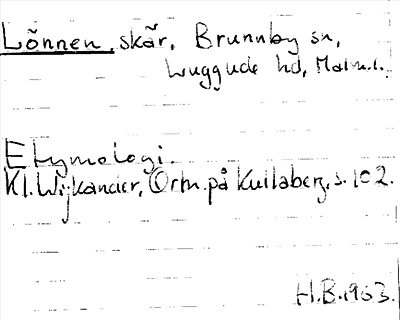 Lönnen, skär, Brunnby sn,
Luggude hd, Malm.l.
Etymologi.
Kl. Wijkander, Ortn. på Kullaberg, s. 102.
H.B. 1963.